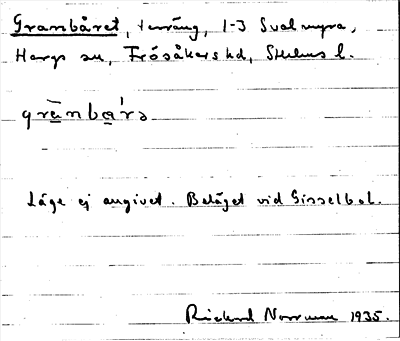 Granbåret, terräng, 1-3 Svalmyra,
Hargs sn, Frösåkers hd, Sthlms l.
grànbá'rə
Läge ej angivet. Beläget vid Gisselbol.
Rickard Norrman 1935.